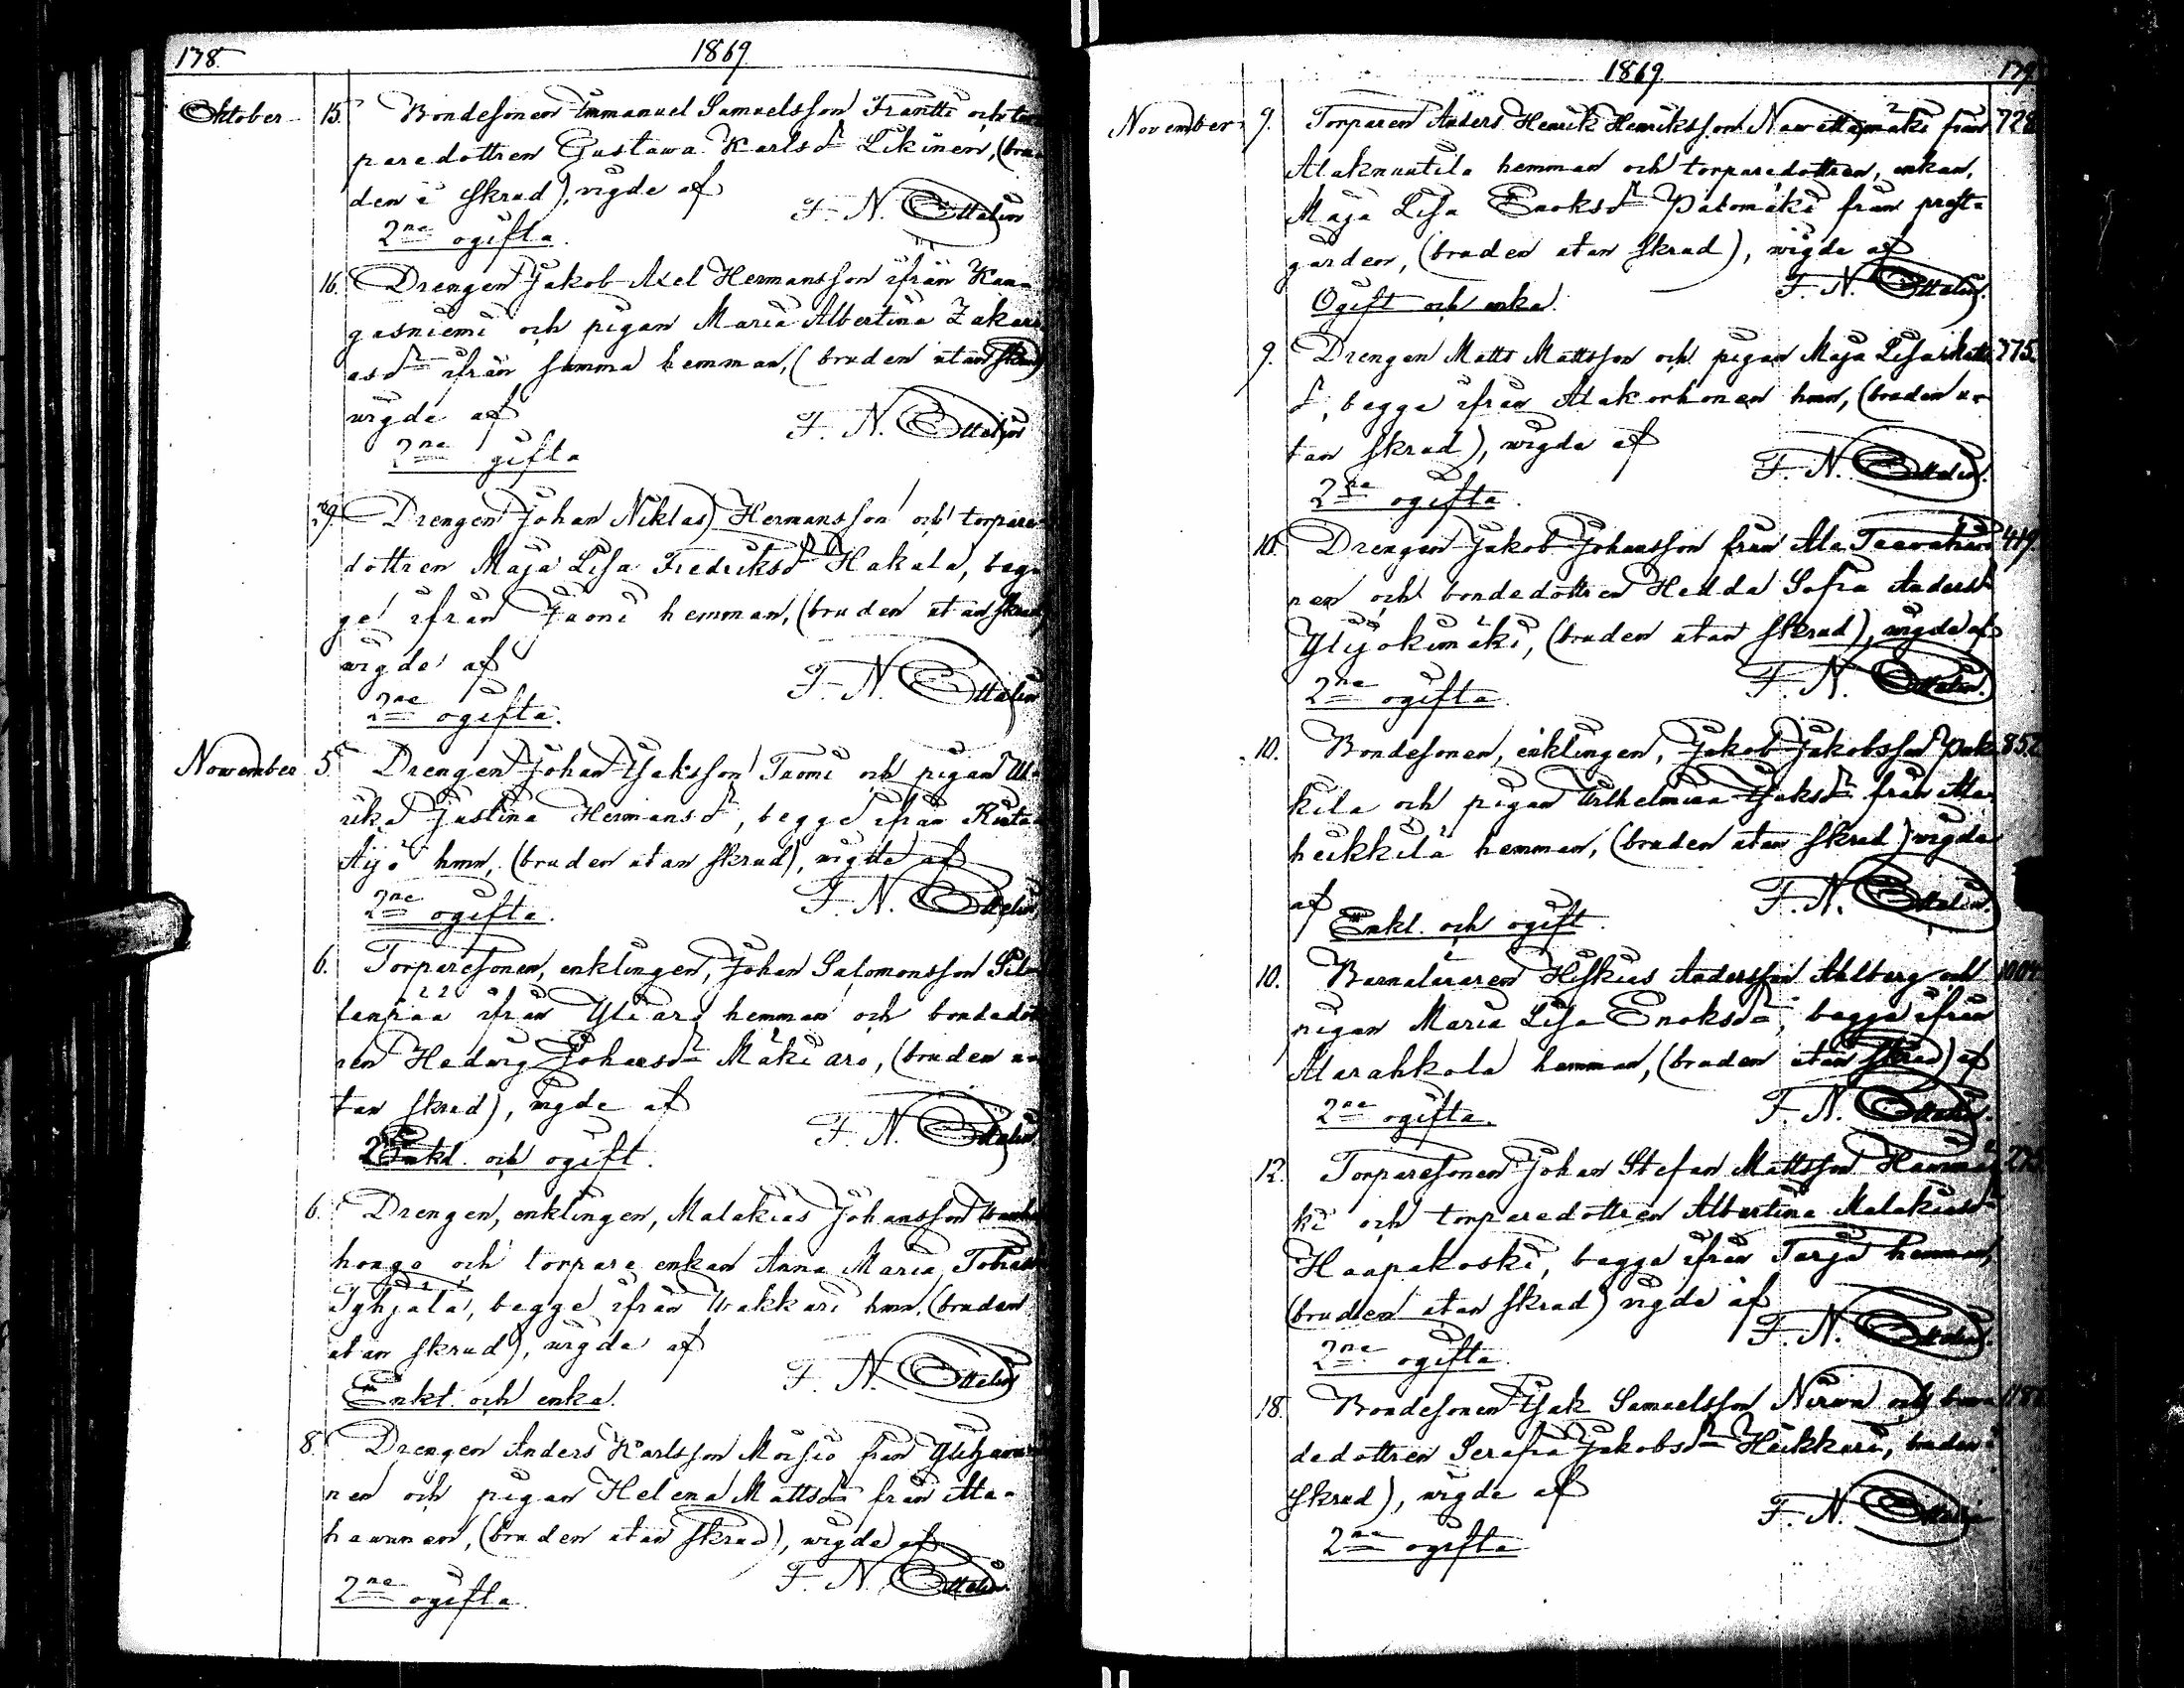 178. 1869.
Oktober 15. Bondesonen Immanuel Samuelsson Frantti och tor
paredottren Gustawa Karlsdr Likinen, (bru
den i skrud), vigde af
F. N. Ottelin
2ne ogifta.
16. Drengen Jakob Axel Hermansson ifrån Kan-
gasniemi och pigan Maria Albertina Zakari
asdr ifrån samma hemman, (bruden utan skrud)
wigde af
F. N. Ottelin
2ne gifta
29. Drengen Johan Niklas Hermansson och torpare
dottren Maja Lisa Fredriksdr Hakala, beg-
ge ifrån Jaoni hemman, (bruden utan skrud)
wigde af
F. N. Ottelin
2ne ogifta.
November 5. Drengen Johan Isaksson Tuomi och pigan Ul-
rika Justina Hermansdr, begge ifrån Rinta
Äijö hmn, (bruden utan skrud), wigde af
F. N. Ottelin
2ne ogifta.
6. Torparesonen, enklingen, Johan Salomonsson Sil-
tenpää ifrån Yliaro hemman och bondedot
ren Hedwig Johansdr Mäkiaro, (bruden u-
tan skrud), vigde af
F. N. Ottelin
Enkl. och ogift.
6. Drengen, enklingen, Malakias Johansson Wanha
honge och torpare enkan Anna Maria
begge ifrån Wakkuri hmn, (bruden
utan skrud), wigde af
F. N. Ottelin
Enkl. och enka.
8. Drengen Anders Karlsson Moisio från
nen och pigan Helena Mattsdr från Ala-
haunnen, (bruden utan skrud), wigde af
F. N. Ottelin
2ne ogifta.
1869 179.
November 9. Torparen Anders Henrik Henriksson Nawettamäki från 728
Alaknuutila hemman och torparedottren, enkan,
Maja Lisa Enoksdr Patomäki från prosta
garden, (bruden utan skrud), wigde af
F. N. Ottelin.
Ogift och enka.
9. Drengen Matts Mattsson och pigan Maja Lisa Matts 775.
dr, begge ifrån Alakorhonen hmn, (bruden u-
tan skrud), wigde af
F. N. Ottelin.
2ne ogifta.
10. Drengen Jakob Johansson från Ala 449.
nen och bondedottren Hedda Sofia Andersdr
Ylijokimäki, (bruden utan skrud), wigde af
F. N. Ottelin.
2ne ogifta.
10. Bondesonen, enklingen, Jakob Jakobsson 852
kila och pigan Wilhelmina Isaksdr från Ala
heikkilä hemman, (bruden utan skrud) wigde
af
F. N. Ottelin.
Enkl. och ogift.
10. Barnaläraren Hiskias Andersson Ahlberg och
pigan Maria Lisa Enoksdr, begge ifrån
Alarahkola hemman, (bruden utan skrud) af
F. N. Ottelin.
2ne ogifta.
12. Torparesonen Johan Stefan Mattsson
ki och torparedottren Albertina Malakiasdr
Haapakoski, begge ifrån Tarja hemman,
(bruden utan skrud) vigde af
F. N. Ottelin.
2ne ogifta.
18. Bondesonen Isak Samuelsson Nirwa och bon
dedottren Serafia Jakobsdr Heikkari, bruden i
skrud), wigde af
F. N. Ottelin
2ne ogifta